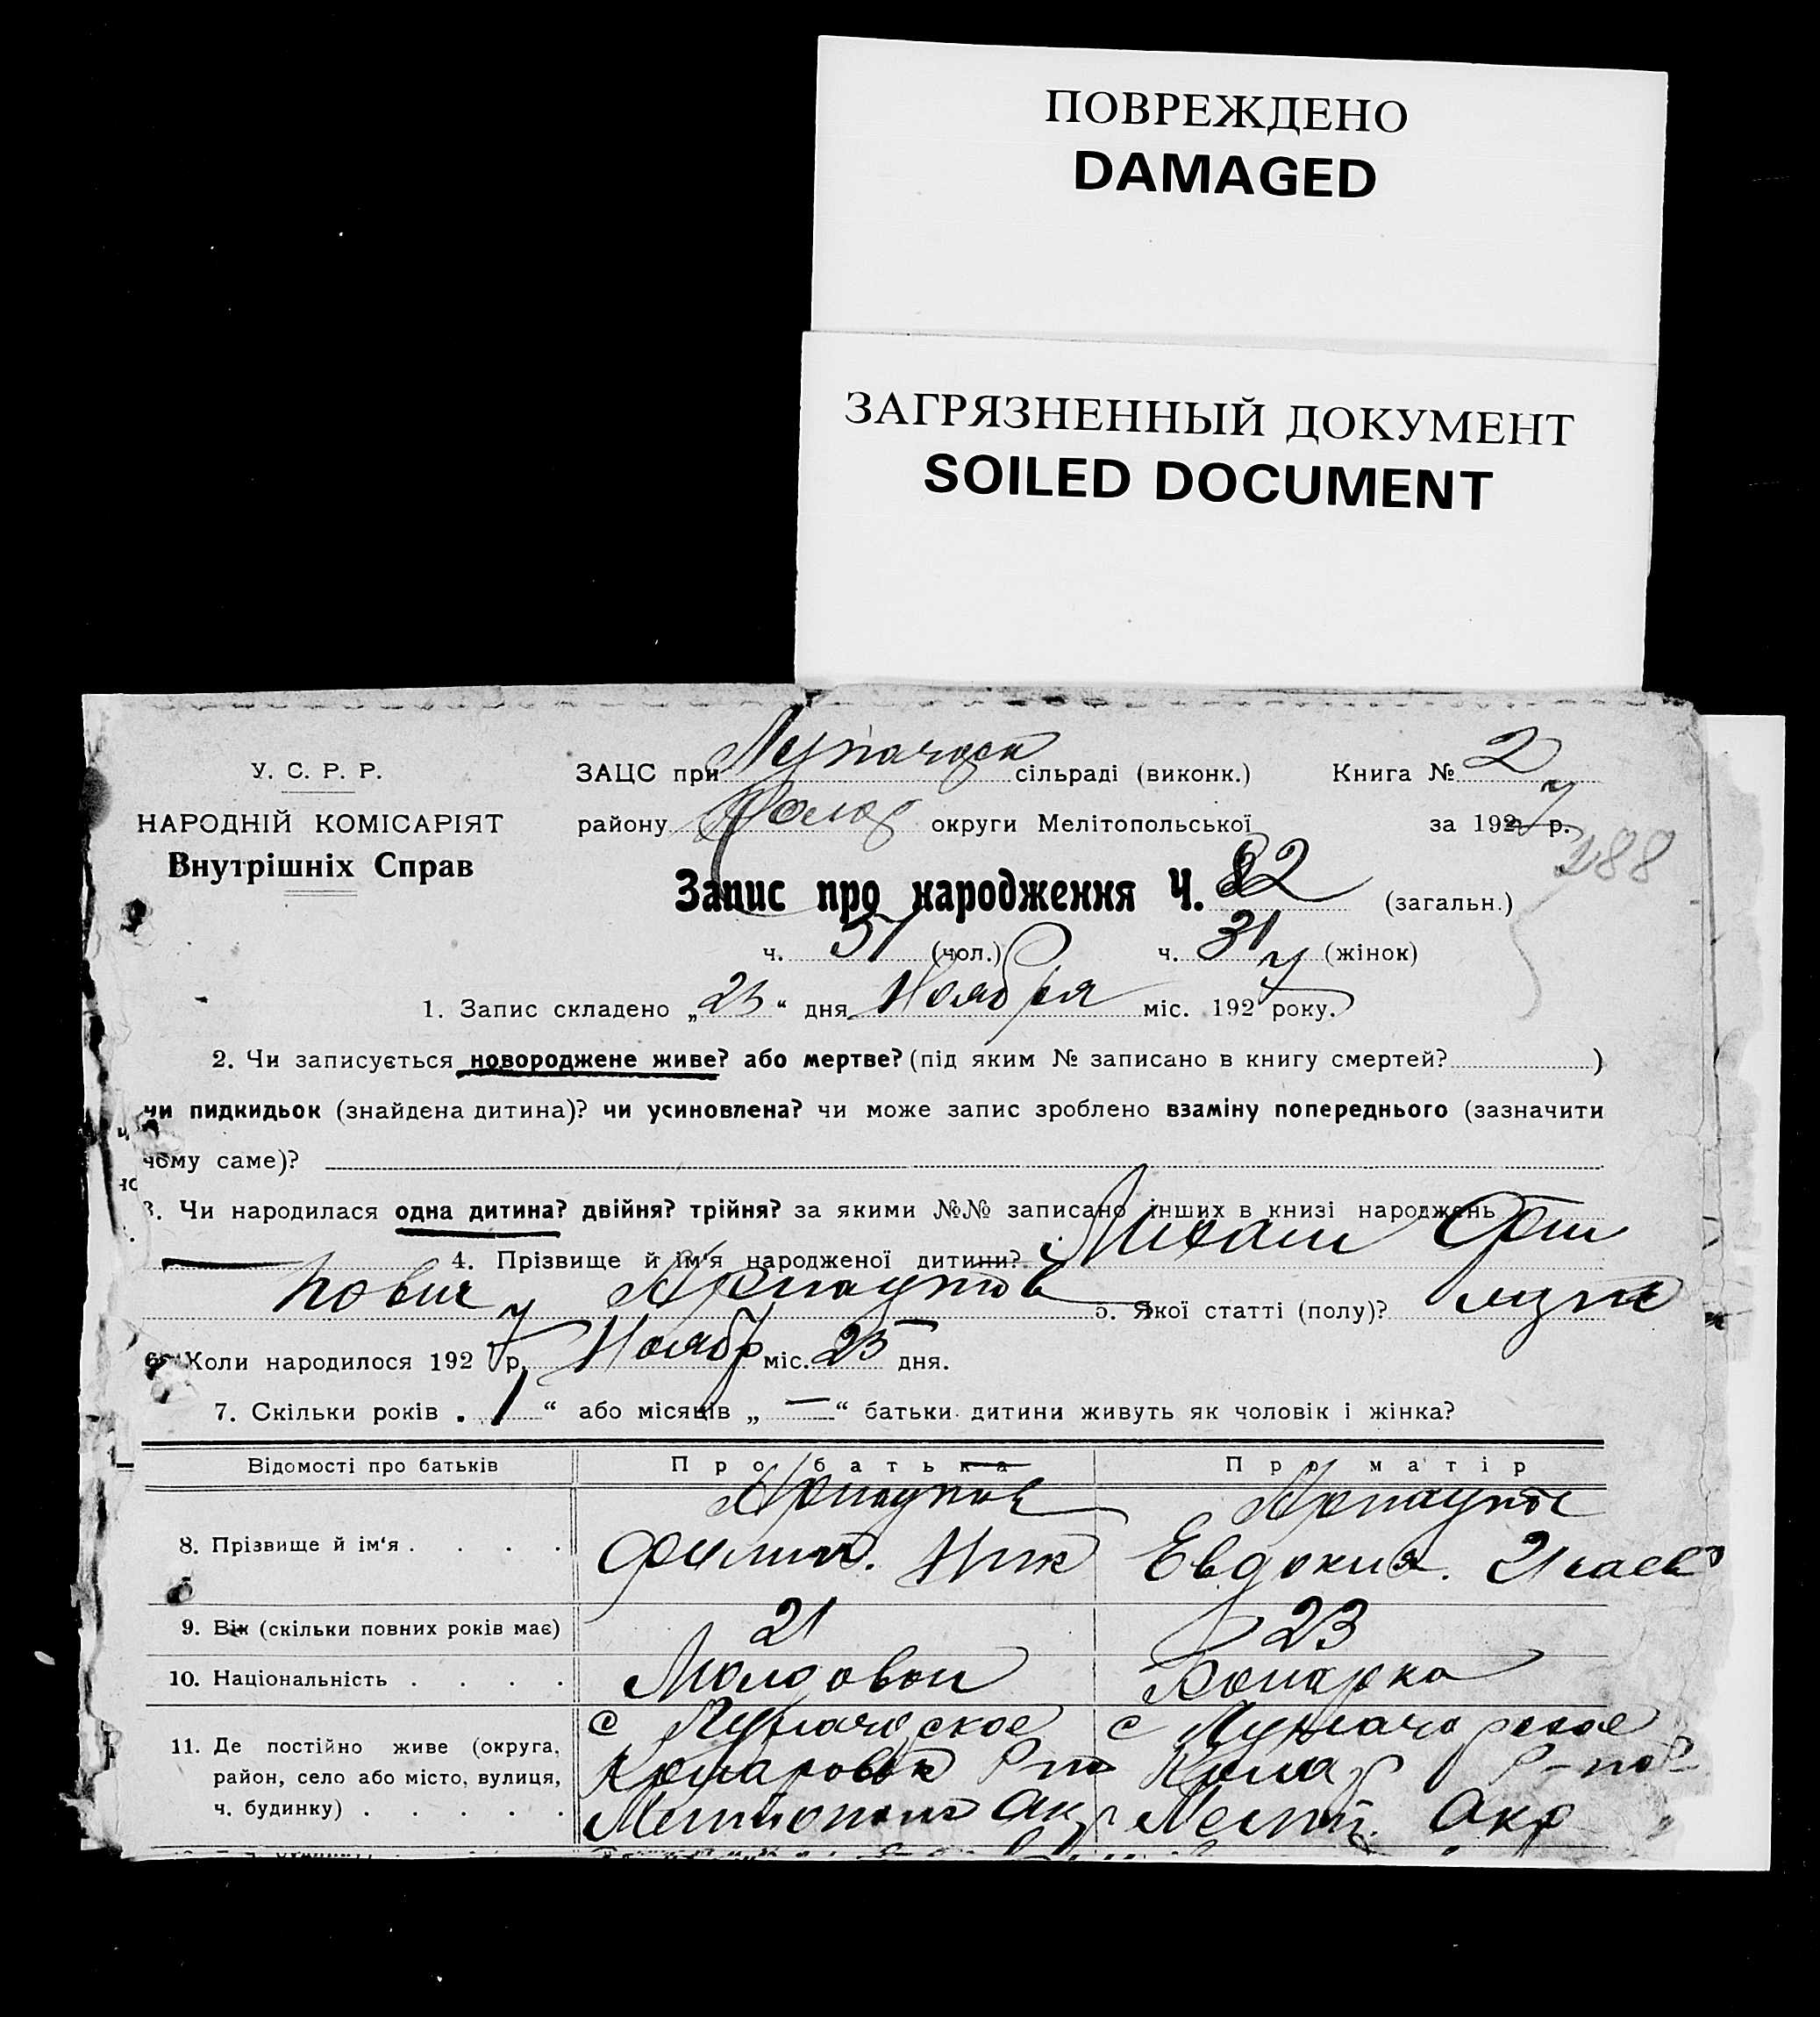 ПОВРЕЖДЕНО
DAMAGED
ЗАГРЯЗНЕННЫЙ ДОКУМЕНТ
SOILED DOCUMENT
У. С. Р. Р.
НАРОДНІЙ КОМІСАРІЯТ
Внутрішніх Справ
ЗАЦС при сільраді (виконк.) Книга № 2
району округи Мелітопольської за 1927 р.
288
Запис про народження Ч. 82 (загальн.)
ч. 51 (чол.) ч. 31 (жінок)
1. Запис складено „23“ дня Ноября міс. 1927 року.
2. Чи записується новороджене живе? або мертве? (під яким № записано в книгу смертей? )
чи пидкидьок (знайдена дитина)? чи усиновлена? чи може запис зроблено взаміну попереднього (зазначити
чому саме)?
3. Чи народилася одна дитина? двійня? трійня? за якими №№ записано інших в книзі народжень
4. Прізвище й ім'я народженої дитини? Михаил Фили
пович Арнаутов 5. Якої статті (полу)? муж
6. Коли народилося 1927 р. Ноябр міс. 23 дня.
7. Скільки років „1“ або місяців „—“ батьки дитини живуть як чоловік і жінка?
Відомості про батьків Про батька Про матір
Арнаутов Арнаутов
8. Прізвище й ім'я . . . . Филип. Ник Евдокия. Исаев
9. Вік (скільки повних років має) 21 23
10. Національність . . . . Молдован Болгарка
11. Де постійно живе (округа, с с
район, село або місто, вулиця,
ч. будинку) . . . . . Окр